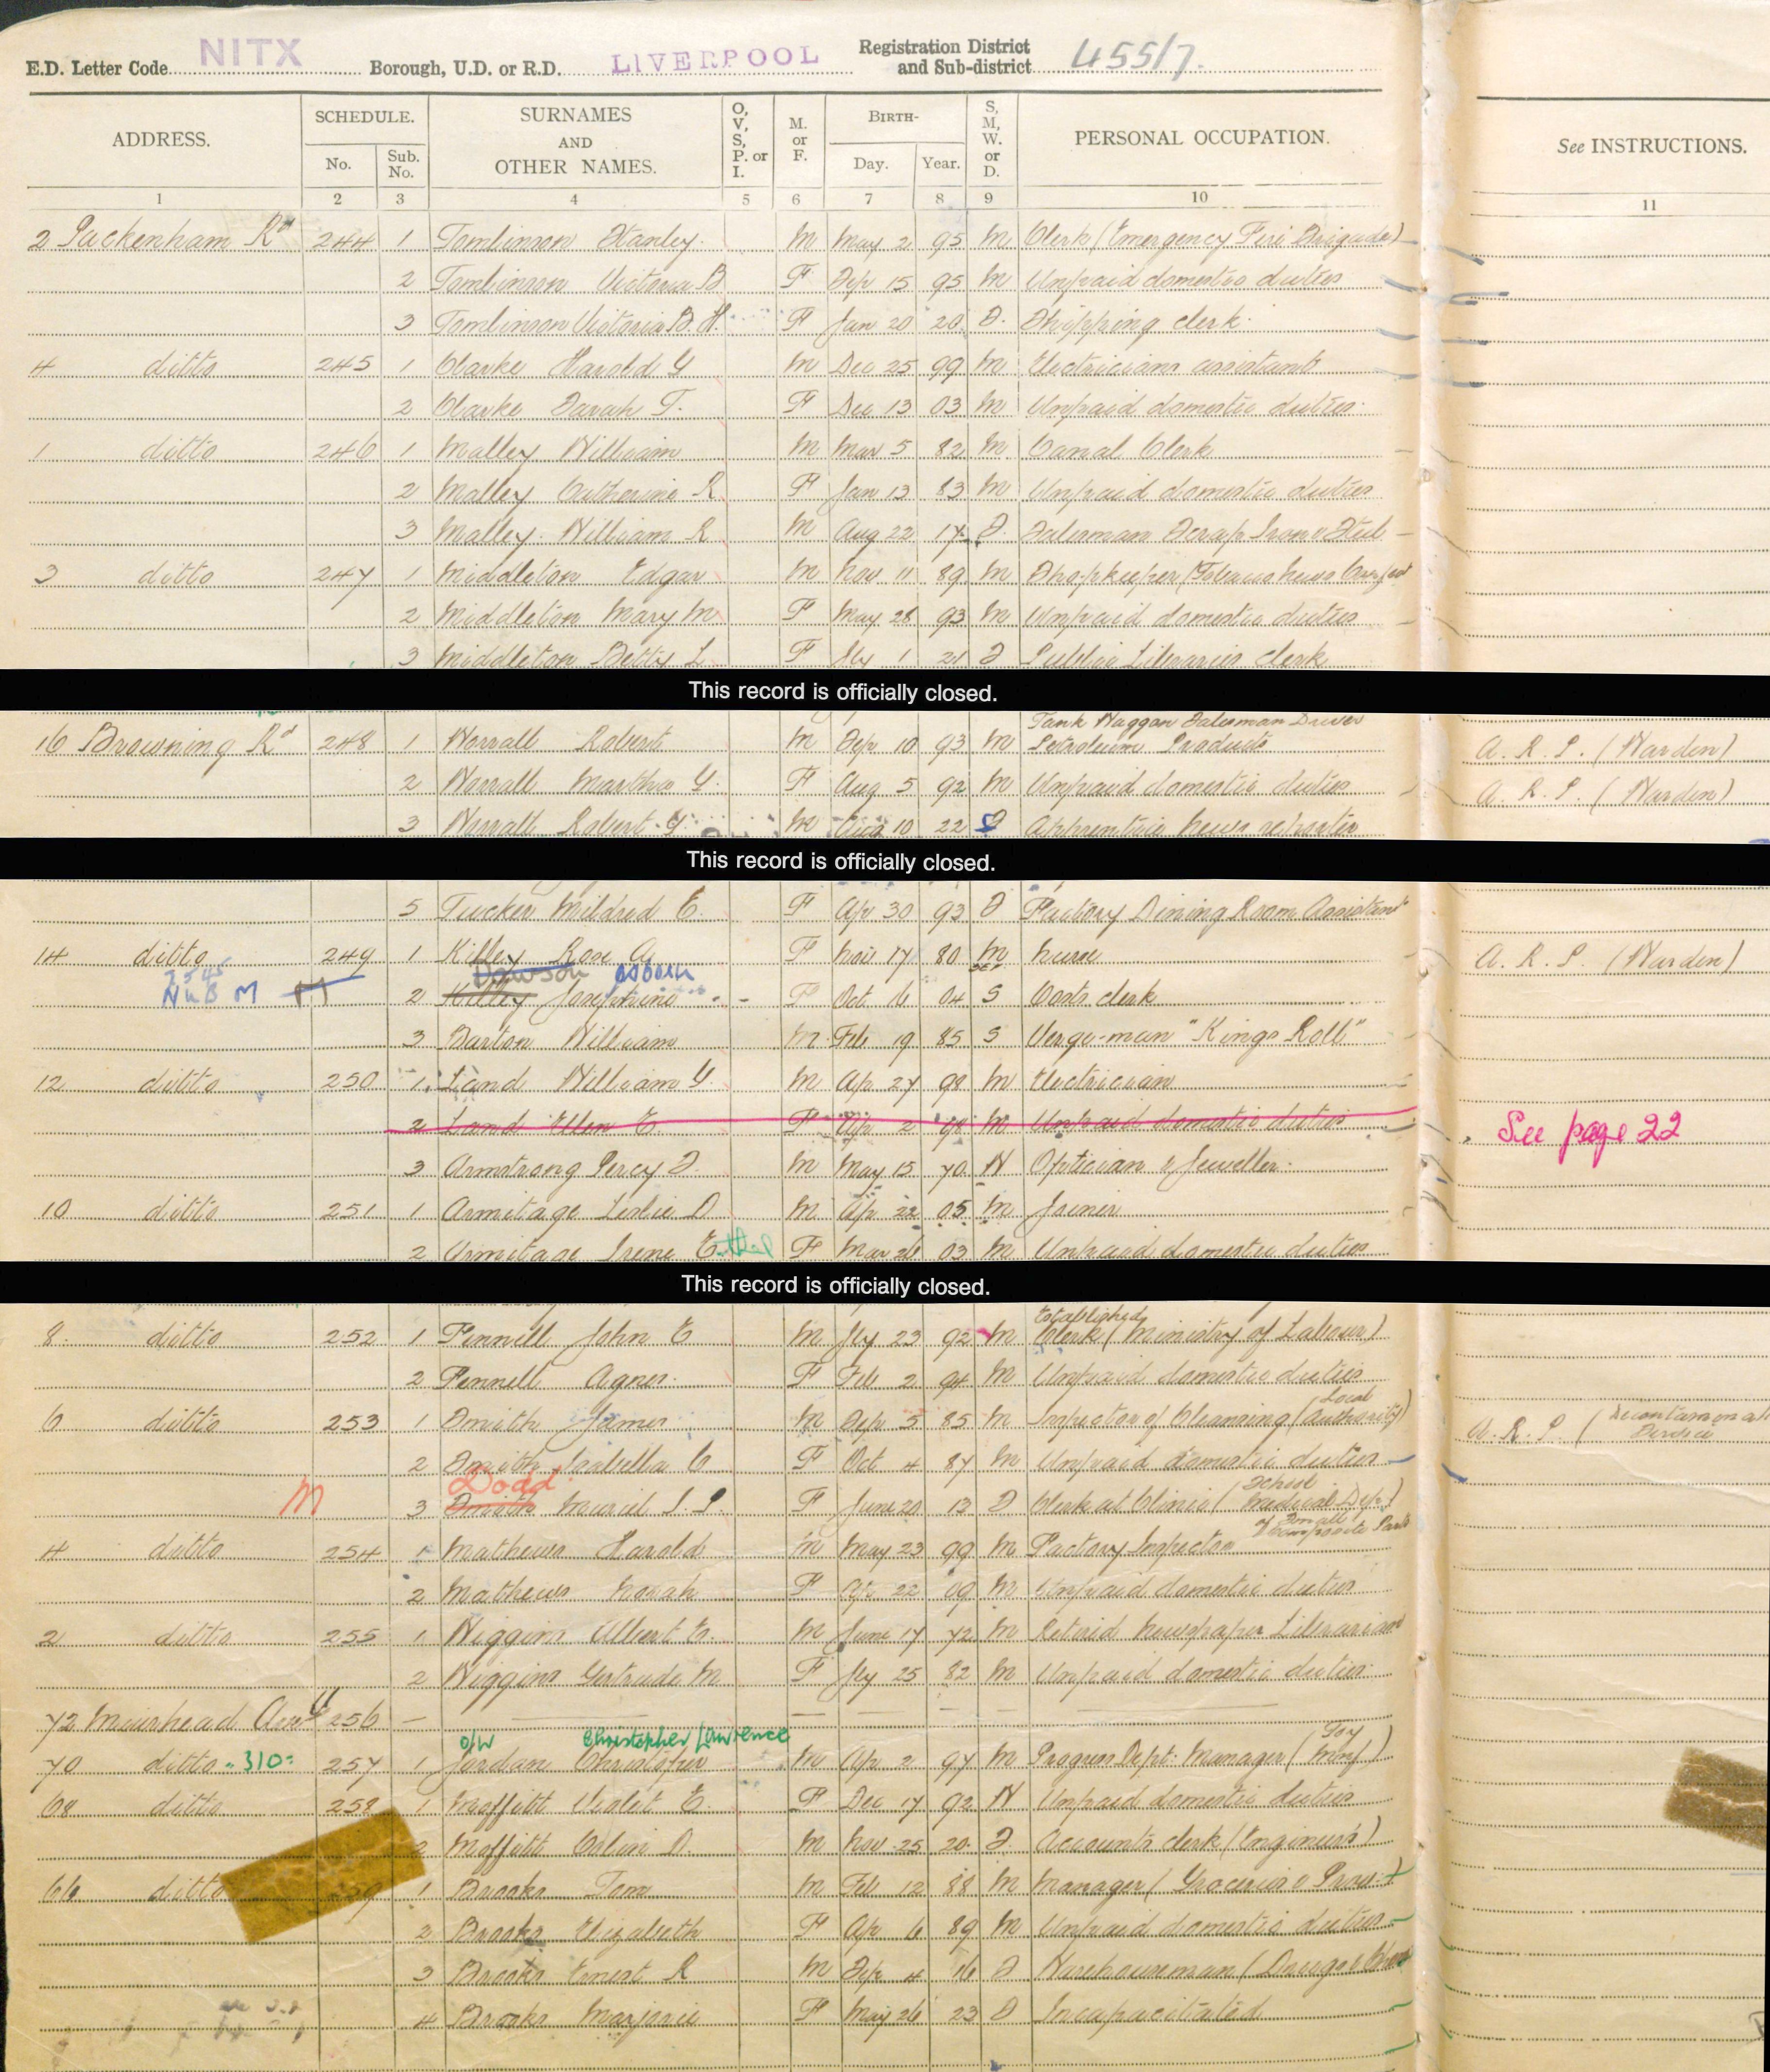 E.D. Letter Code NITX Borough, U.D. or R.D. LIVERPOOL Registration District and Sub-district 455/7.
ADDRESS. SCHEDULE. No. Sub. No. SURNAMES AND OTHER NAMES. O, V, S, P. or I. M. or F. BIRTH- Day. Year. S, M, W. or D. PERSONAL OCCUPATION. See INSTRUCTIONS.
1 2 3 4 5 6 7 8 9 10 11
2 Packenham Rd 244 1 Tomlinson Stanley. M May 2 95 M Clerk (Emergency Fire Brigade)
2 Tomlinson Victoria B F Sep 15 95 M Unpaid domestic duties
3 Tomlinson Victoria B. H. F Jan 20 20 S. Shipping clerk.
4 ditto 245 1 Clarke Harold G M Dec 25 99 M Electricians assistant
2 Clarke Sarah T. F Dec 13 03 M Unpaid domestic duties.
1 ditto 246 1 Malley William M Mar 5 82 M Canal Clerk
2 Malley Catherine R F Jan 13 83 M Unpaid domestic duties
3 Malley William R M Aug 22 17 S. Salesman Scrap Iron & Steel
3 ditto 247 1 Middleton Edgar M Nov 11 89 M Shopkeeper (Tobacco News
2 Middleton Mary M F May 28 93 M Unpaid domestic duties
3 Middleton Betty L F Jly 1 21 S Public Libraries clerk
This record is officially closed.
Tank Waggon Salesman Driver
16 Browning Rd 248 1 Worrall Robert M Sep 10 93 M Petroleum Products A. R. P. (Warden)
2 Worrall Martha G. F Aug 5 92 M Unpaid domestic duties A. R. P. (Warden)
3 Worrall Robert G. M Aug 10 22 S Apprentice News reporter
This record is officially closed.
5 Tucker Mildred E. F Apr 30 93 S Factory Dining Room Assistant
14 ditto 249 1 Killey Rose A. F Nov 17 80 M Nurse A. R. P. (Warden)
Dawson
NWB M M 2 Killey Josephine - F Oct 6 04 S Costs clerk
3 Barton William M Feb 19 85 S Verge-man "Kings Roll"
12 ditto 250 1. Land William G. M Apr 27 98 M Electrician
2 Land Ellen E. F Apr 2 98 M Unpaid domestic duties See page 22
3 Armstrong Percy S. M May 15 70 W Optician & Jeweller.
10 ditto 251 1 Armitage Leslie D M Apr 22 05 M Joiner
2 Armitage Irene Ethel F Mar 26 03 M Unpaid domestic duties
This record is officially closed.
Established
8. ditto 252 1 Fennell John E M Jly 23 92 M Clerk (Ministry of Labour)
2 Fennell Agnes. F Feb 2 94 M Unpaid domestic duties
6 ditto 253 1 Smith James M Sep 5 85 M Inspector of Cleansing (Local Authority) A. R. P. (
2 Smith Isabella C F Oct 4 87 M Unpaid domestic duties
Dodd
M 3 Smith Muriel I. L. F June 20 13 S Clerk at Clinic (School Medical Dep.)
of Small Composite Parts
4 ditto 254 1 Mathews Harold M May 23 99 M Factory Inspector
2 Mathews Norah F Apr 22 09 M Unpaid domestic duties
2 ditto 255 1 Wiggins Albert E. M June 17 72 M Retired Newspaper Librarian
2 Wiggins Gertrude M F Jly 25 82 M Unpaid domestic duties.
72 Muirhead Ave 256 —
o/w Christopher Lawrence
70 ditto "310" 257 1 Jordan Christopher M Apr 2 97 M Progress Dept. Manager (Toy Manf)
68 ditto 258 1 Moffitt Violet E. F Dec 17 92 W Unpaid domestic duties
2 Moffitt Colin D. M Nov 25 20. S. Accounts clerk (Engineers)
66 ditto 259 1 Brooks Tom M Feb 12 88 M Manager (Groceries & Provs.)
2 Brooks Elizabeth F Apr 6 89 M Unpaid domestic duties
3 Brooks Ernest R M Sep 4 16 S Warehouseman (
4 Brooks Marjorie F May 26 23 S Incapacitated